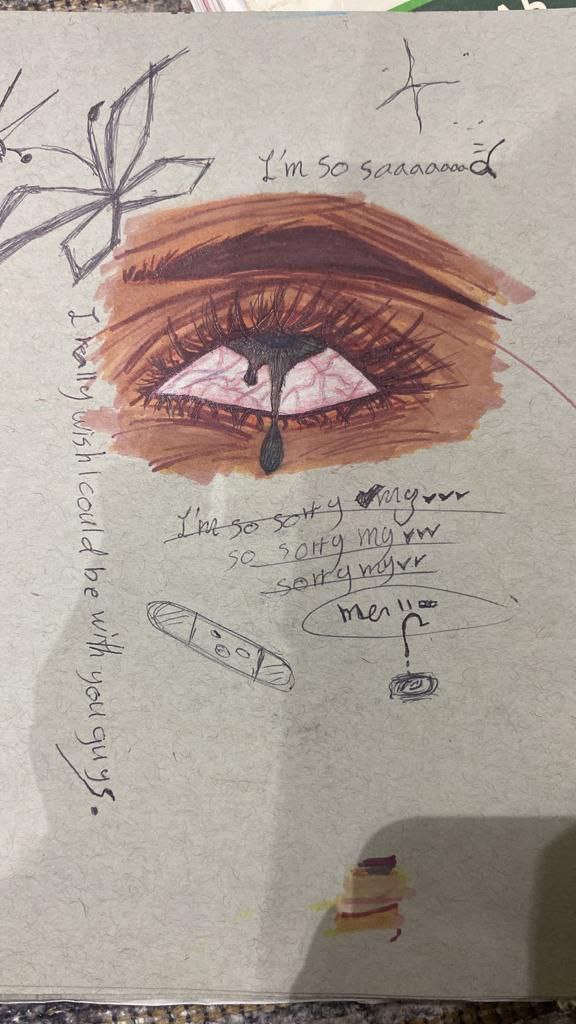 I'm so saaaaaaad
I really wish I could be with you guys.
I'm so sorry my
so sorry my
sorry my